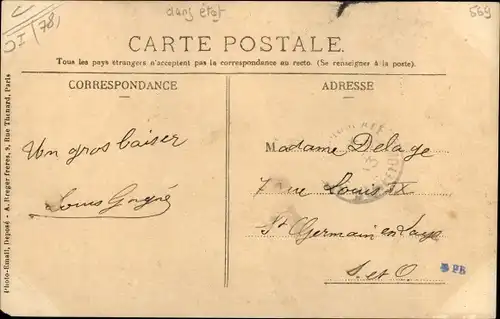 dans état
559
OI (78)
CARTE POSTALE.
Tous les pays étrangers n'acceptent pas la correspondance au recto. (Se renseigner à la poste).
CORRESPONDANCE
ADRESSE
Un gros baiser
Louis
Madame Delage
7 rue Louis IX
St Germain en Laye
S. et O
PB
Photo-Email, Déposé - A. Breger frères, 9, Rue Thénard, Paris